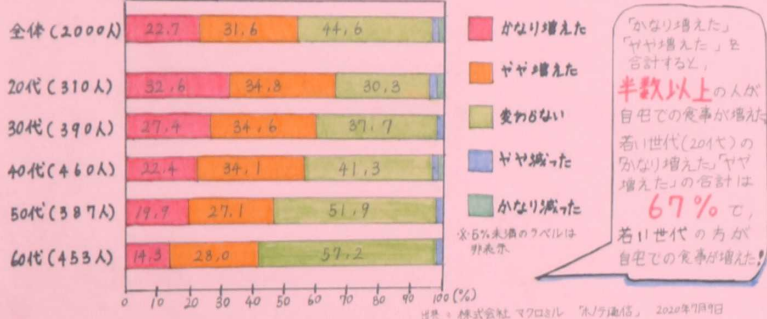 全体(2000人) 22,7 31,6 44,6
20代(310人) 32,6 34,8 30,3
30代(390人) 27,4 34,6 37,7
40代(460人) 22,4 34,1 41,3
50代(387人) 19,9 27,1 51,9
60代(453人) 14,3 28,0 57,2
0 10 20 30 40 50 60 70 80 90 100(%)
かなり増えた
やや増えた
変わらない
やや減った
かなり減った
※5%未満のラベルは
非表示
「かなり増えた」
「やや増えた」を
合計すると、
半数以上の人が
自宅での食事が増えた
若い世代(20代)の
「かなり増えた」「やや
増えた」の合計は
67%で、
若い世代の方が
自宅での食事が増えた!
出典:株式会社マクロミル「ホノテ通信」 2020年7月9日